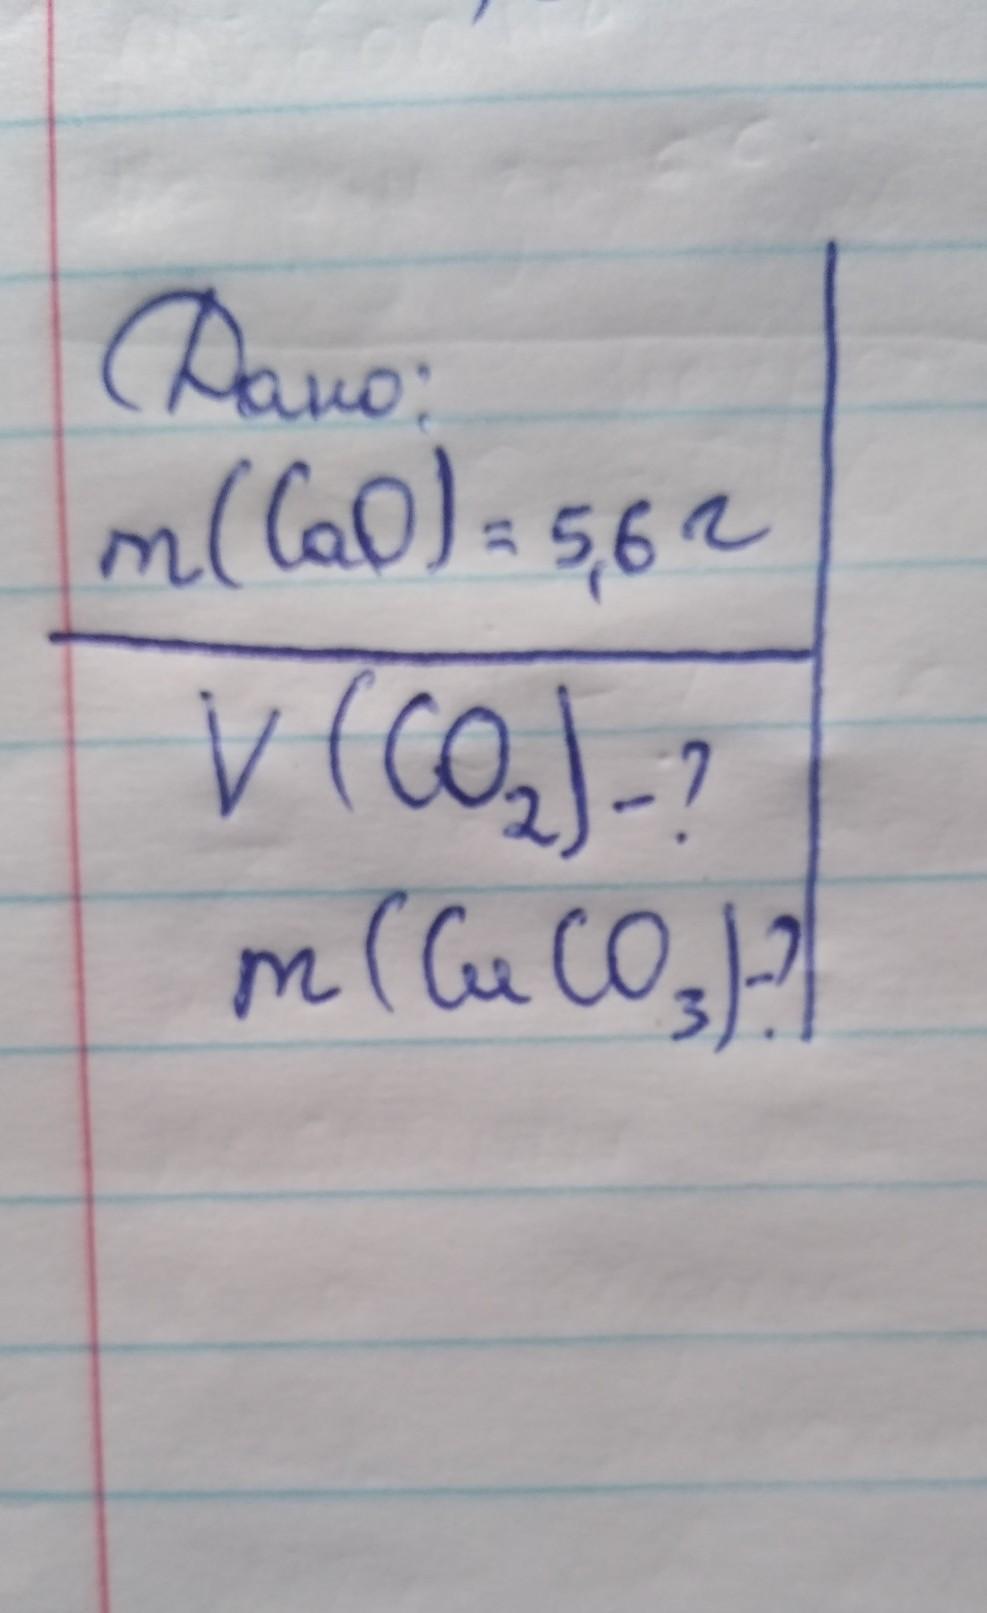 Дано:
m(CaO) = 5,6 г
V(CO₂) - ?
m(CuCO₃) - ?